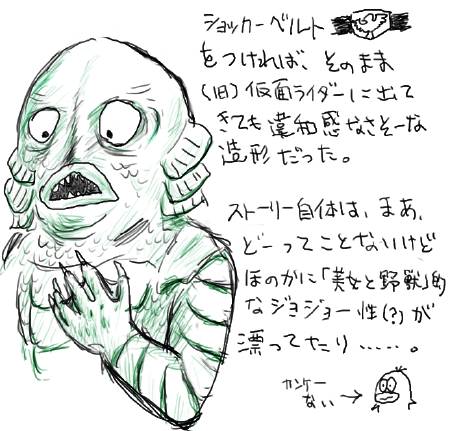 ショッカーベルト
をつければ、そのまま
(旧)仮面ライダーに出て
きても違和感なさそーな
造形だった。
ストーリー自体は、まあ、
どーってことないけど
ほのかに「美女と野獣」的
なジョジョー性(?)が
漂ってたり……。
カンケー
ない→